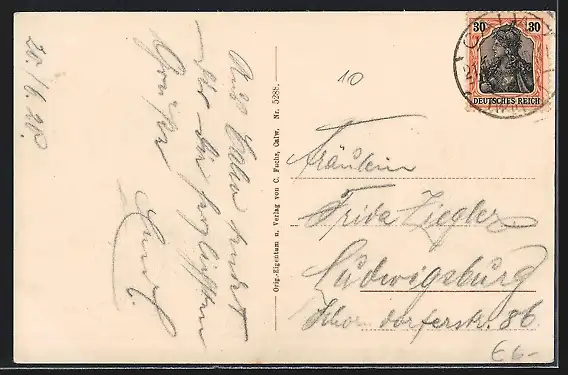 20./6. 20.
Aus Calw sendet
Dir die herzlichsten
Grüße
Orig.-Eigentum u. Verlag von C. Fuchs, Calw. Nr. 5288.
10
30 30
DEUTSCHES REICH
Fräulein
Frida Ziegler
Ludwigsburg
Schorndorferstr. 86
E6-